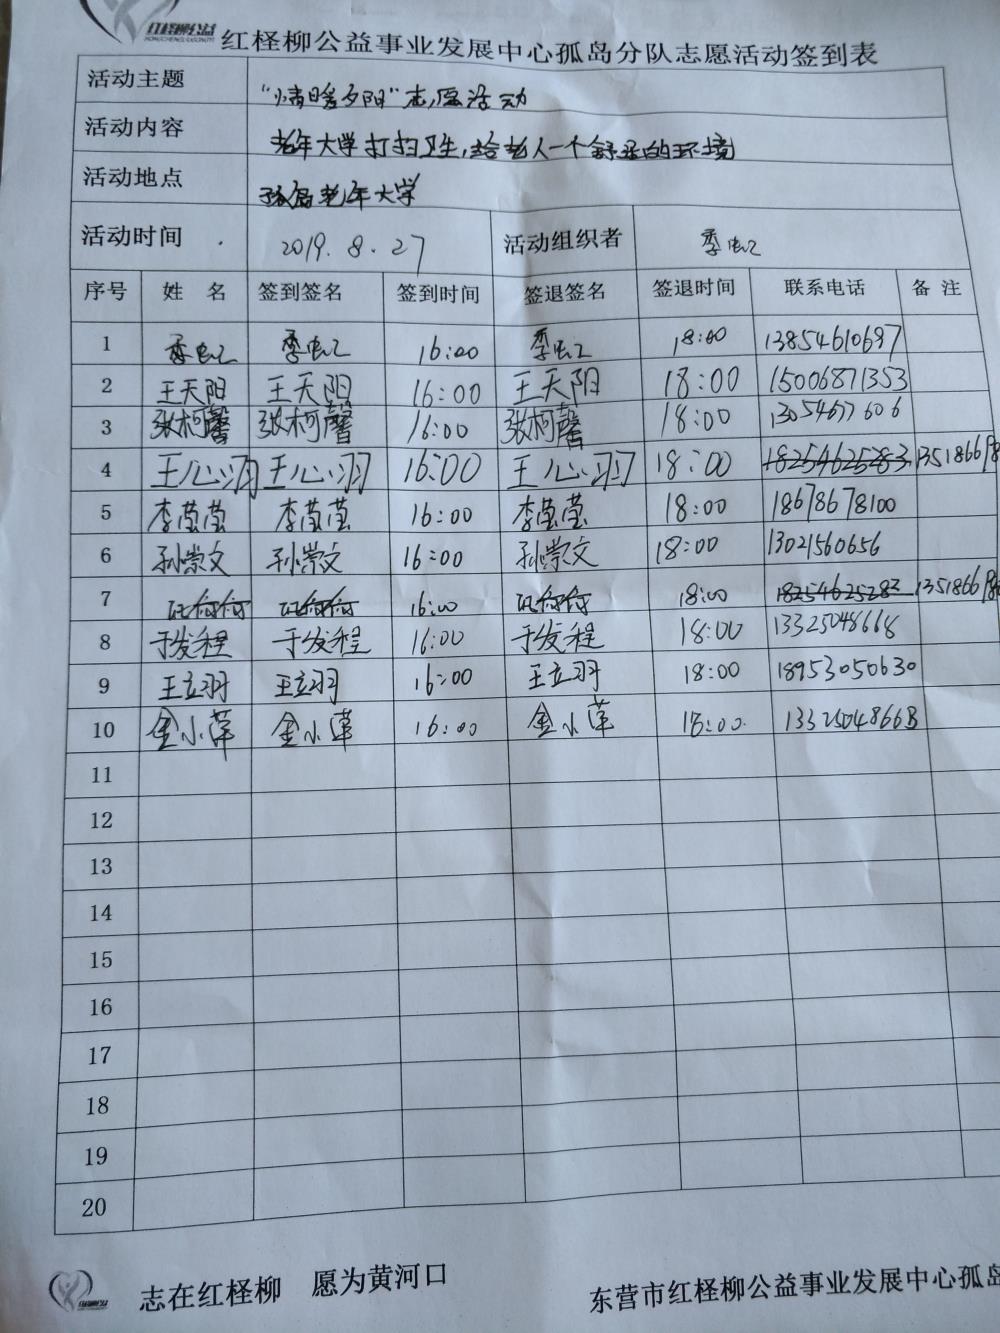 红柽柳公益
红柽柳公益事业发展中心孤岛分队志愿活动签到表
活动主题 “情暖夕阳”志愿活动
活动内容 老年大学打扫卫生,给老人一个舒适的环境
活动地点 孤岛老年大学
活动时间 2019.8.27 活动组织者 季虹
序号 姓名 签到签名 签到时间 签退签名 签退时间 联系电话 备注
1 季虹 季虹 16:00 季虹 18:00 13854610697
2 王天阳 王天阳 16:00 王天阳 18:00 15006871353
3 张柯馨 张柯馨 16:00 张柯馨 18:00 13054677606
4 王心羽 王心羽 16:00 王心羽 18:00 18254625283 135186698
5 李莹莹 李莹莹 16:00 李莹莹 18:00 18678678100
6 孙崇文 孙崇文 16:00 孙崇文 18:00 13021560656
7 16:00 18:00 18254625283 13518669
8 于发程 于发程 16:00 于发程 18:00 13325048668
9 王立羽 王立羽 16:00 王立羽 18:00 18953050630
10 金小萍 金小萍 16:00 金小萍 18:00 13325048668
11
12
13
14
15
16
17
18
19
20
志在红柽柳 愿为黄河口
东营市红柽柳公益事业发展中心孤岛